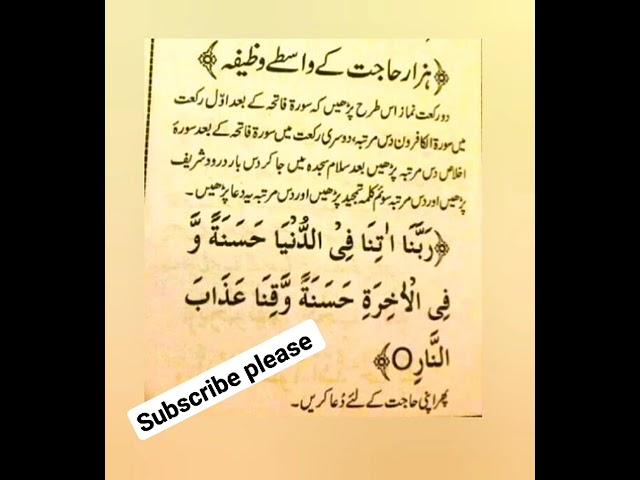 ﴿ہزار حاجت کے واسطے وظیفہ﴾
دو رکعت نماز اس طرح پڑھیں کہ سورۃ فاتحہ کے بعد اوّل رکعت
میں سورۃ الکافرون دس مرتبہ، دوسری رکعت میں سورۃ فاتحہ کے بعد سورۃ
اخلاص دس مرتبہ پڑھیں بعد سلام سجدہ میں جا کر دس بار درود شریف
پڑھیں اور دس مرتبہ سوئم کلمہ تمجید پڑھیں اور دس مرتبہ یہ دعا پڑھیں۔
﴿رَبَّنَا اٰتِنَا فِی الدُّنْیَا حَسَنَةً وَّ
فِی الْاٰخِرَةِ حَسَنَةً وَّقِنَا عَذَابَ
النَّارِO﴾
Subscribe please
پھر اپنی حاجت کے لئے دُعا کریں۔